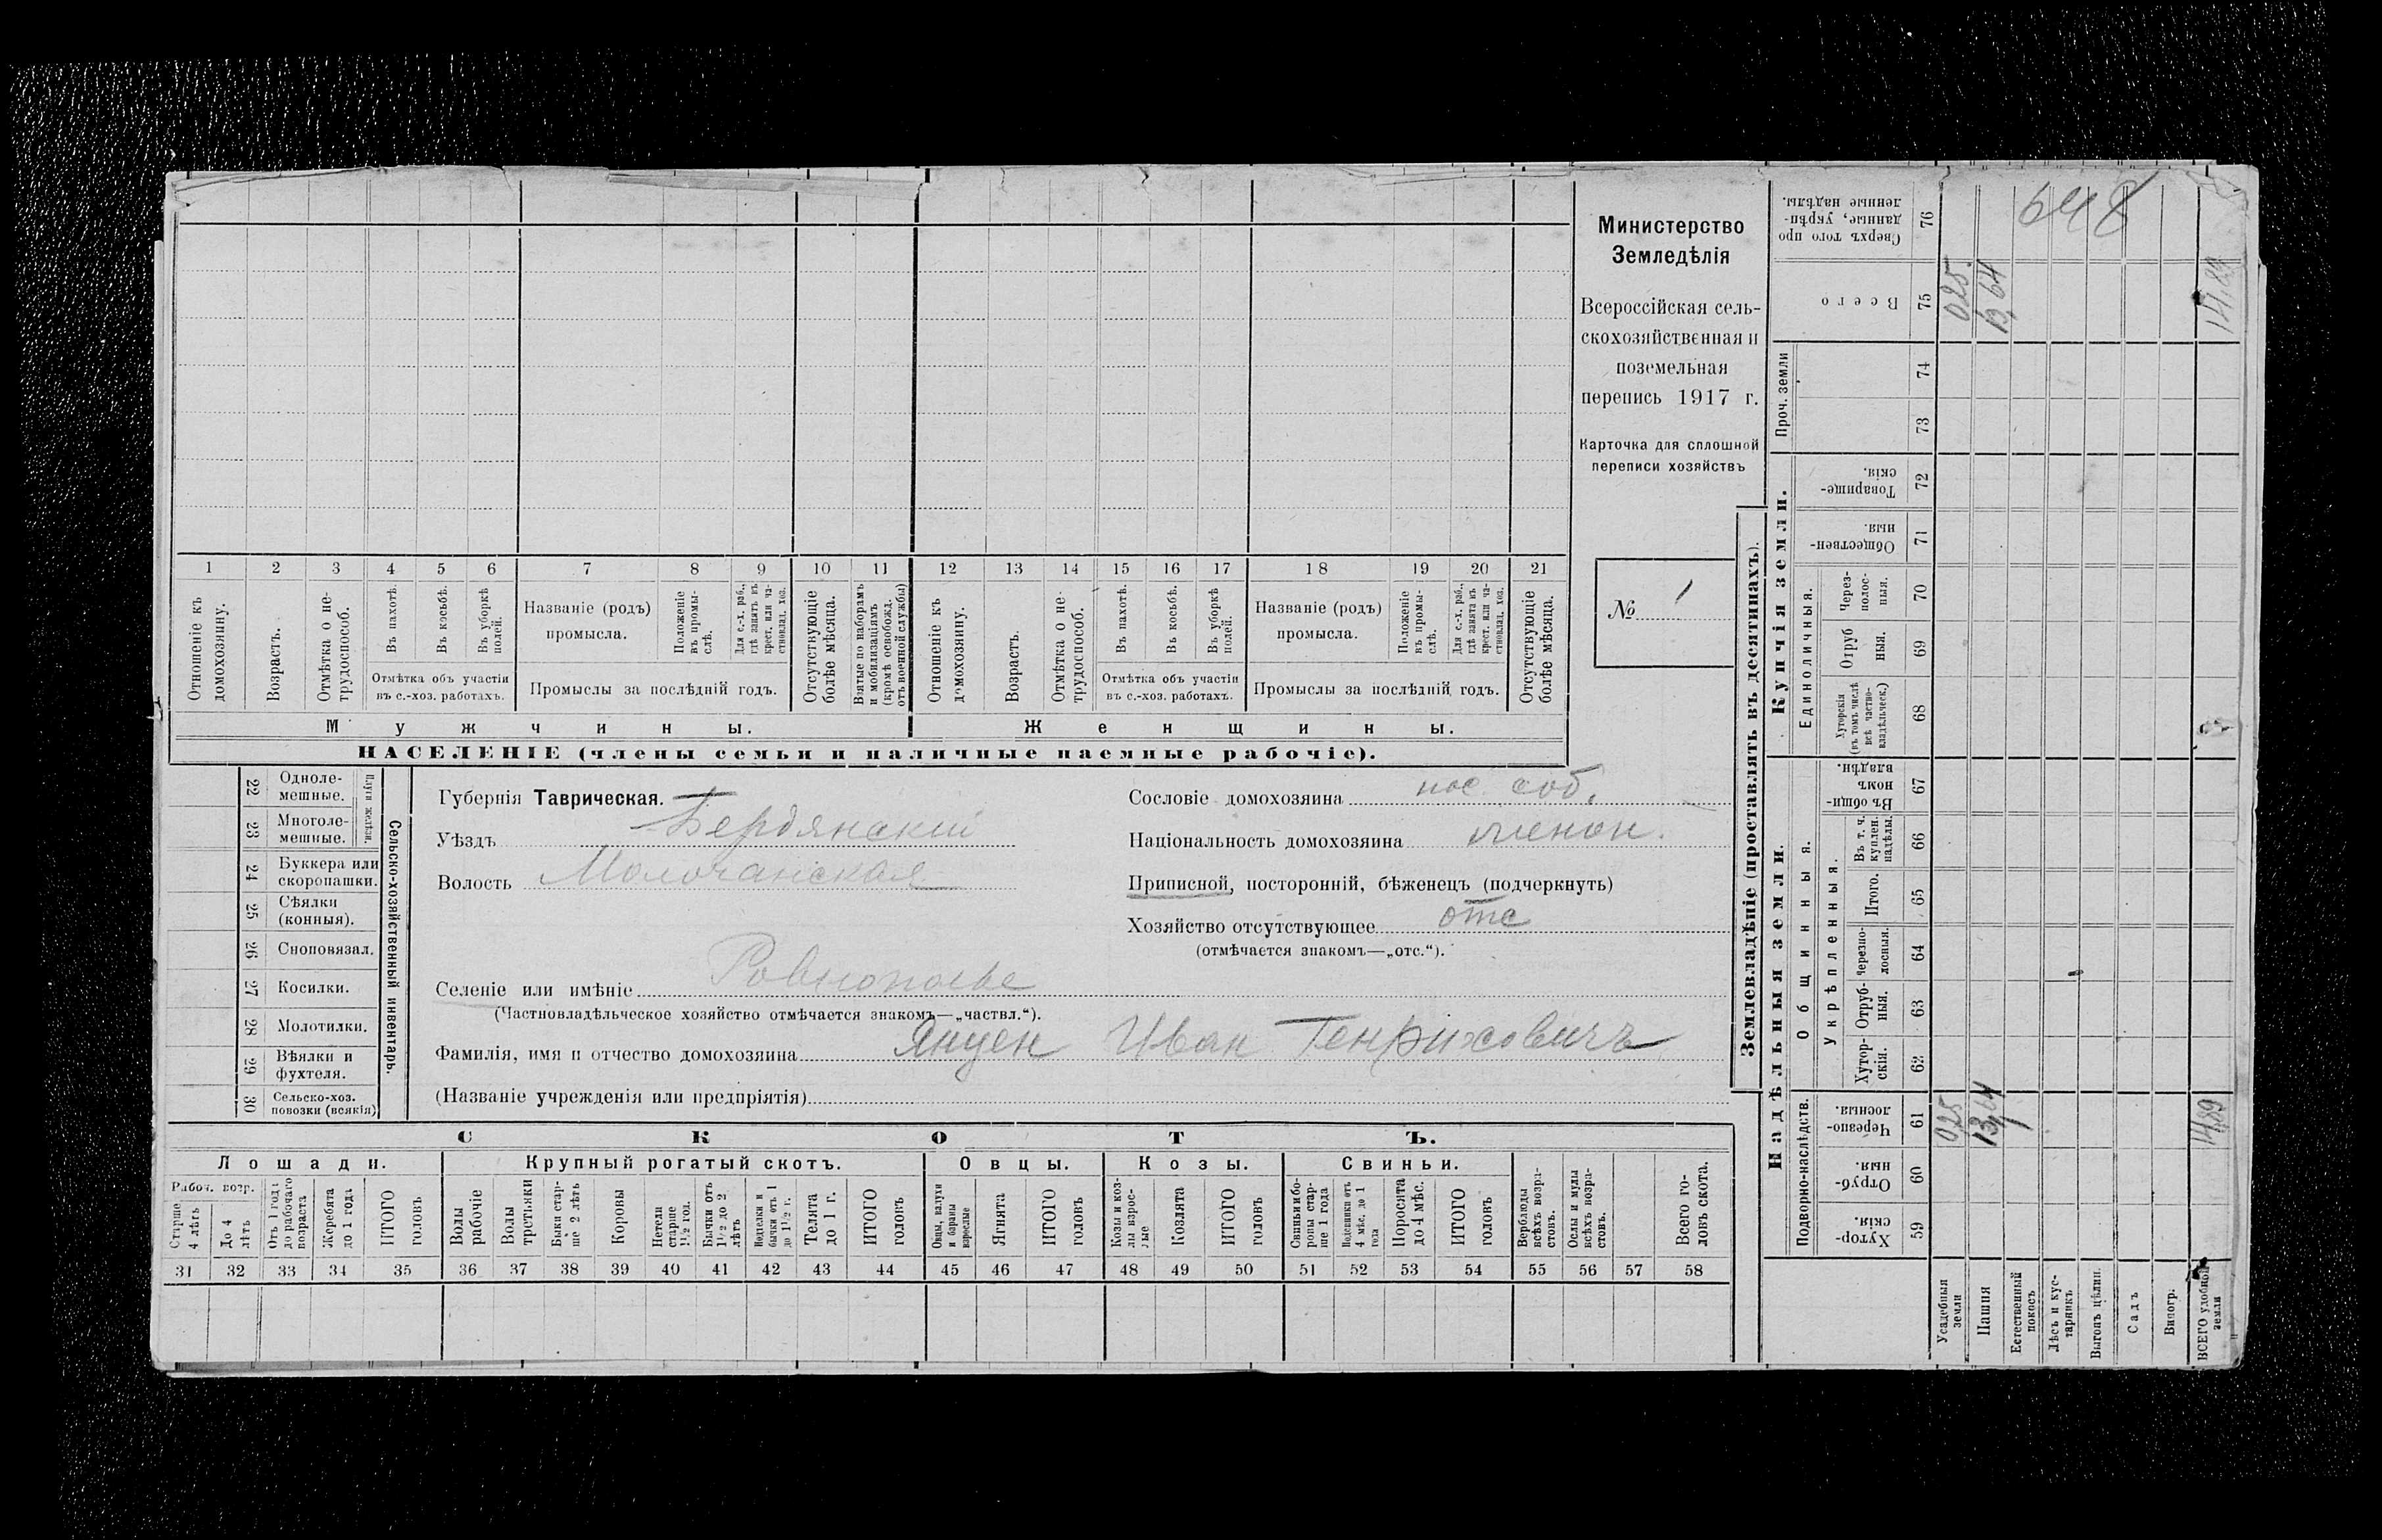 Министерство
Земледѣлія
Всероссійская сель-
скохозяйственная и
поземельная
перепись 1917 г.
Карточка для сплошной
переписи хозяйствъ
№ 1
1 2 3 4 5 6 7 8 9 10 11 12 13 14 15 16 17 18 19 20 21
Отношеніе къ домохозяину.
Возрастъ.
Отмѣтка о не-трудоспособ.
Въ пахотѣ.
Въ косьбѣ.
Въ уборкѣ полей.
Отмѣтка объ участіи
въ с.-хоз. работахъ.
Названіе (родъ)
промысла.
Положеніе въ промы-слѣ.
Для с.-х. раб., гдѣ занятъ въ крест. или ча-стновлад. хоз.
Промыслы за послѣдній годъ.
Отсутствующіе болѣе мѣсяца.
Взятые по наборамъ и мобилизаціямъ (кромѣ освобожд. отъ военной службы)
Отношеніе къ домохозяину.
Возрастъ.
Отмѣтка о не-трудоспособ.
Въ пахотѣ.
Въ косьбѣ.
Въ уборкѣ полей.
Отмѣтка объ участіи
въ с.-хоз. работахъ.
Названіе (родъ)
промысла.
Положеніе въ промы-слѣ.
Для с.-х. раб., гдѣ занята въ крест. или ча-стновлад. хоз.
Промыслы за послѣдній годъ.
Отсутствующіе болѣе мѣсяца.
Мужчины. Женщины.
НАСЕЛЕНІЕ (члены семьи и наличные наемные рабочіе).
22 Одноле-мешные.
23 Многоле-мешные.
Плуги желѣзн.
24 Буккера или скоропашки.
25 Сѣялки (конныя).
26 Сноповязал.
27 Косилки.
28 Молотилки.
29 Вѣялки и фухтеля.
30 Сельско-хоз. повозки (всякія)
Сельско-хозяйственный инвентарь.
Губернія Таврическая.
Уѣздъ Бердянский
Волость Молочанская
Сословіе домохозяина пос. соб.
Національность домохозяина менон.
Приписной, посторонній, бѣженецъ (подчеркнуть)
Хозяйство отсутствующее отс
(отмѣчается знакомъ—„отс.“).
Селеніе или имѣніе Ровнополье
(Частновладѣльческое хозяйство отмѣчается знакомъ—„частвл.“).
Фамилія, имя и отчество домохозяина Янцен Иван Генриховичъ
(Названіе учрежденія или предпріятія)
СКОТЪ.
Лошади. Крупный рогатый скотъ. Овцы. Козы. Свиньи.
Рабоч. возр.
Старше 4 лѣтъ
До 4 лѣтъ
Отъ 1 года до рабочаго возраста
Жеребята до 1 года
ИТОГО головъ
Волы рабочіе
Волы третьяки
Быки стар-ше 2 лѣтъ
Коровы
Нетели старше 1½ год.
Бычки отъ 1½ до 2 лѣтъ
Нетелки и бычки отъ 1 до 1½ г.
Телята до 1 г.
ИТОГО головъ
Овцы, валухи и бараны взрослые
Ягнята
ИТОГО головъ
Козы и коз-лы взрос-лые
Козлята
ИТОГО головъ
Свиньи и бо-ровы стар-ше 1 года
Подсвинки отъ 4 мѣс. до 1 года
Поросята до 4 мѣс.
ИТОГО головъ
Верблюды всѣхъ возра-стовъ.
Ослы и мулы всѣхъ возра-стовъ.
Всего го-ловъ скота.
31 32 33 34 35 36 37 38 39 40 41 42 43 44 45 46 47 48 49 50 51 52 53 54 55 56 57 58
Землевладѣніе (проставлять въ десятинахъ).
Надѣльныя земли. Купчія земли. Проч. земли
Подворно-наслѣдств. Общинныя.
Укрѣпленныя. Единоличныя.
Хутор-скія. 59
Отруб-ныя. 60
Черезпо-лосныя. 61
Хутор-скія. 62
Отруб-ныя. 63
Черезпо-лосныя. 64
Итого. 65
Въ т. ч. куплен. надѣлы. 66
Въ общи-номъ владѣн. 67
Хуторскія (въ томъ числѣ всѣ частно-владѣльческ.) 68
Отруб ныя. 69
Через-полос-ныя. 70
Обществен-ныя. 71
Товарище-скія. 72
73
74
Всего 75
Сверхъ того про данные, укрѣп-ленные надѣлы. 76
Усадебныя земли 0,25 0,25
Пашня 13,64 13,64
Естественный покосъ
Лѣсъ и кус-тарникъ.
Выгонъ цѣлин.
Садъ
Виногр.
ВСЕГО удобной земли 14,89 14,89
648